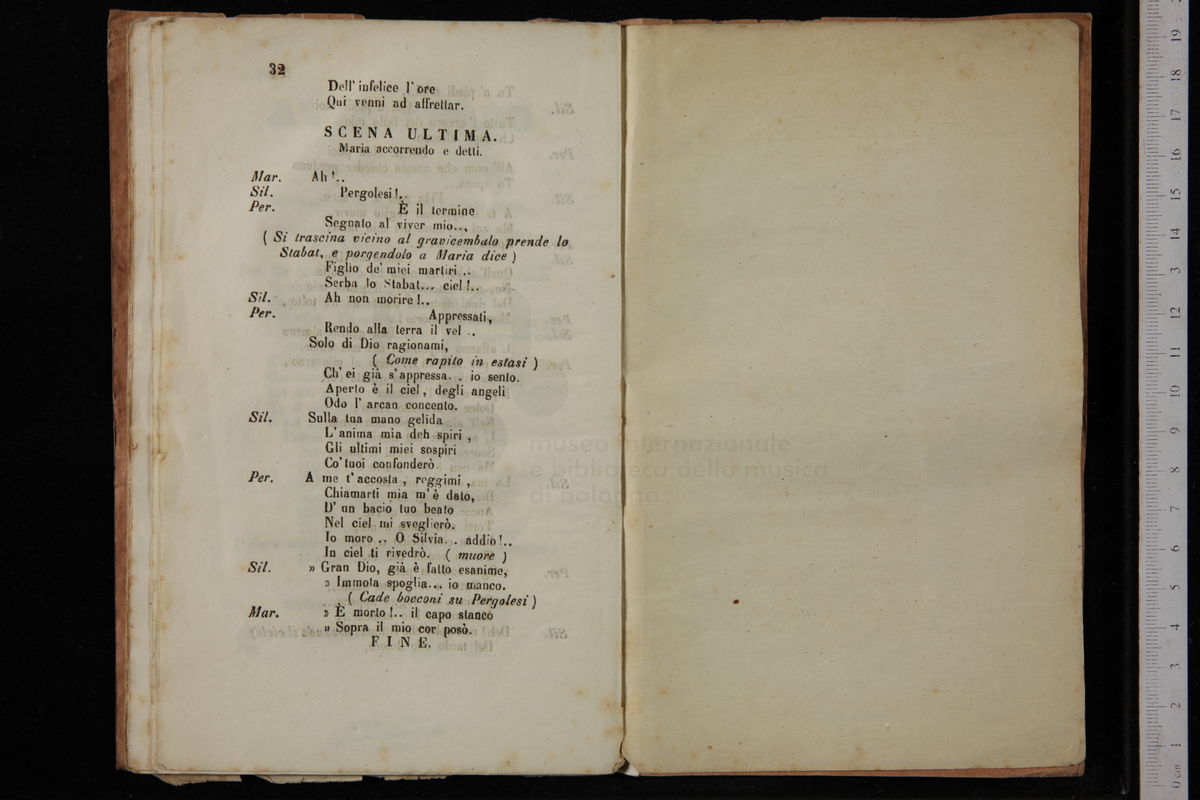 32
Dell' infelice l' ore
Qui venni ad affrettar.
SCENA ULTIMA.
Maria accorrendo e detti.
Mar. Ah !..
Sil. Pergolesi !..
Per. È il termine
Segnato al viver mio..,
( Si trascina vicino al gravicembalo prende lo
Stabat, e porgendolo a Maria dice )
Figlio de' miei martiri ..
Serba lo Stabat... ciel !..
Sil. Ah non morire !..
Per. Appressati,
Rendo alla terra il vel ..
Solo di Dio ragionami,
( Come rapito in estasi )
Ch' ei già s'appressa. . io sento.
Aperto è il ciel, degli angeli
Odo l' arcan concento.
Sil. Sulla tua mano gelida
L' anima mia deh spiri ,
Gli ultimi miei sospiri
Co' tuoi confonderò.
Per. A me t' accosta , reggimi ,
Chiamarti mia m' è dato,
D' un bacio tuo beato
Nel ciel mi sveglierò.
Io moro .. O Silvia. . addio !..
In ciel ti rivedrò. ( muore )
Sil. » Gran Dio, già è fatto esanime,
» Immota spoglia... io manco.
( Cade bocconi su Pergolesi )
Mar. » È morto !.. il capo stanco
» Sopra il mio cor posò.
FINE.
museo internazionale
e biblioteca della musica
di bologna
0 cm 1 2 3 4 5 6 7 8 9 10 11 12 13 14 15 16 17 18 19